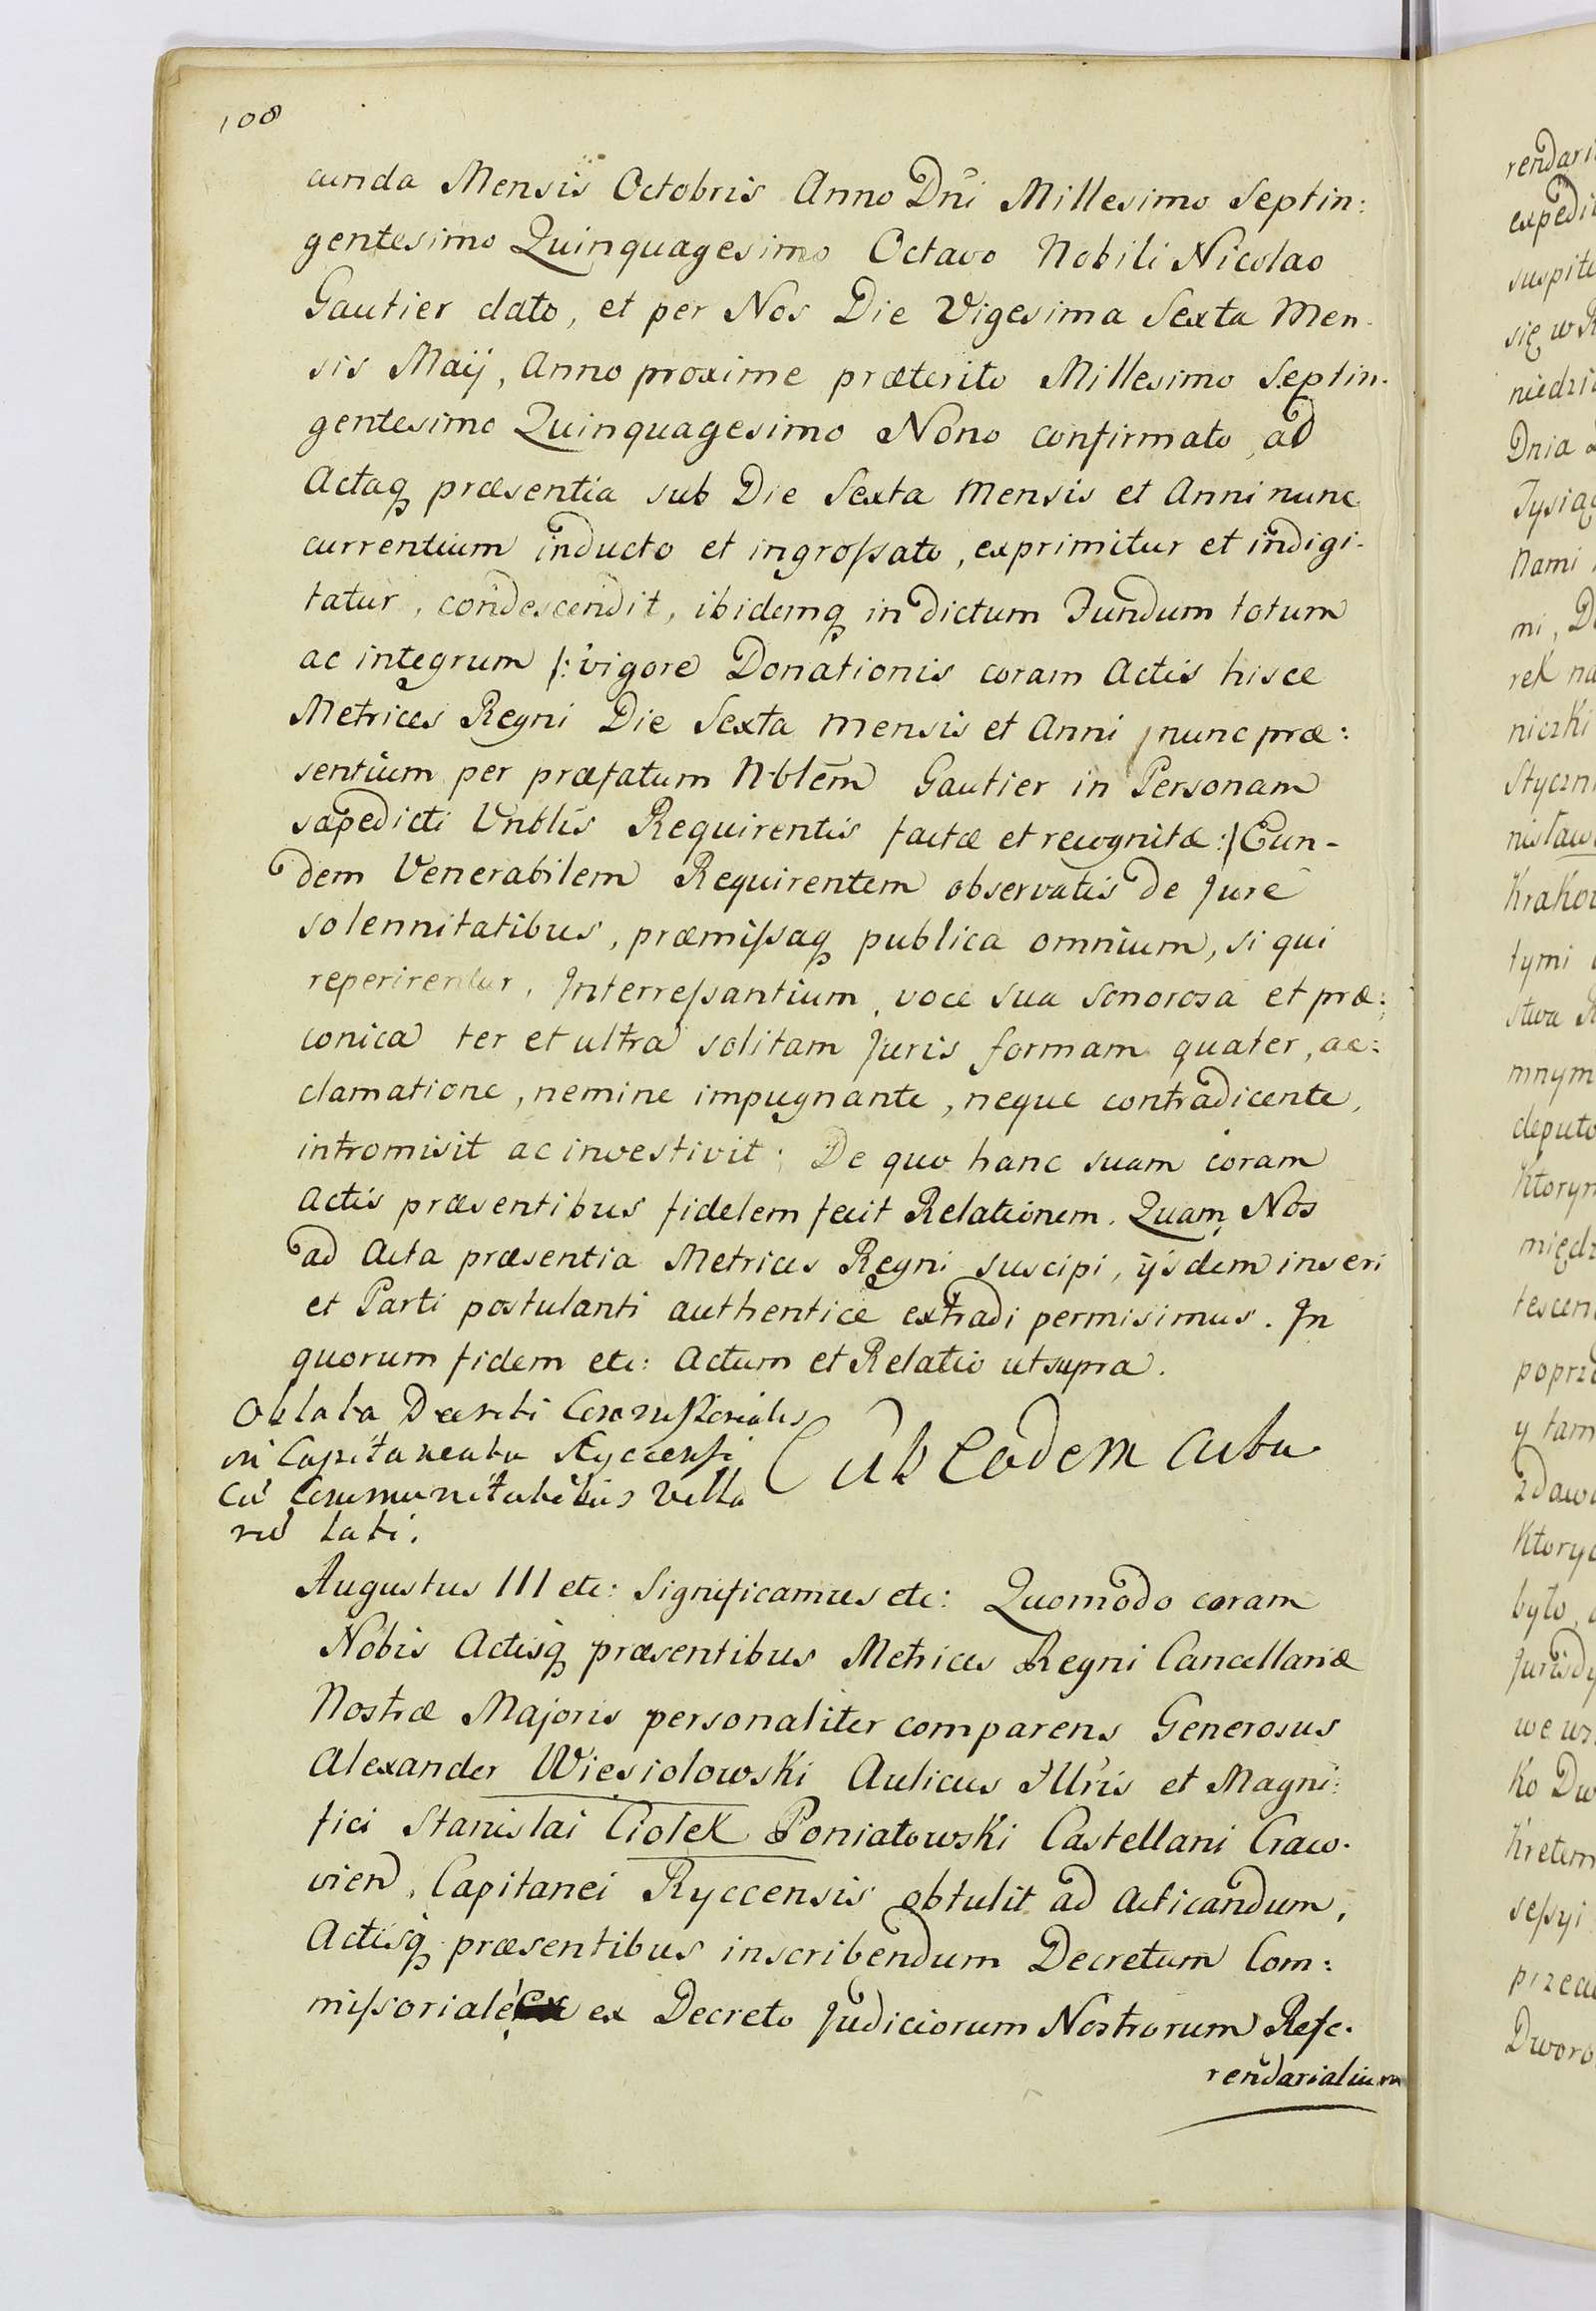 108
cunda Mensis Octobris Anno Dni Millesimo Septin:
gentesimo Quinquagesimo Octavo Nobili Nicolao
Gautier dato, et per Nos Die Vigesima Sexta Men-
sis Maij, Anno proxime præterito Millesimo Septin-
gentesimo Quinquagesimo Nono confirmato, ad
Actaq præsentia sub Die Sexta Mensis et Anni nunc
currentium inducto et ingrossato, exprimitur et indigi-
tatur, condescendit, ibidemq in dictum Fundum totum
ac integrum /: vigore Donationis coram Actis hisce
Metrices Regni Die Sexta Mensis et Anni nunc præ:
sentium per præfatum Nblem Gautier in Personam
sæpedicti Vnblis Requirentis factæ et recognitæ :/ Eun-
dem Venerabilem Requirentem observatis de Jure
solennitatibus, præmissaq publica omnium, si qui
reperirentur, Interressantium, voce sua sonorosa et præ:
conica ter et ultra solitam Juris formam quater, ac:
clamatione, nemine impugnante, neque contradicente,
intromisit ac investivit; De quo hanc suam coram
Actis præsentibus fidelem fecit Relationem. Quam Nos
ad Acta præsentia Metrices Regni suscipi, ijsdem inseri
et Parti postulanti authentice extradi permisimus. In
quorum fidem etc: Actum et Relatio ut supra.
Oblata Decreti Commissorialis
in Capitaneatu Ryccensi
cu Communitatibus Villa
ru lati.
Sub Eodem Actu
Augustus III etc: Significamus etc: Quomodo coram
Nobis Actisq præsentibus Metrices Regni Cancellariæ
Nostræ Majoris personaliter comparens Generosus
Alexander Wiesiolowski Aulicus Illris et Magni:
fici Stanislai Ciolek Poniatowski Castellani Craco-
vien, Capitanei Ryccensis obtulit ad Acticandum,
Actisq præsentibus inscribendum Decretum Com:
missoriale ex Decreto Judiciorum Nostrorum Refe-
rendarialium
rendari
expedi
suspit
się w R
niedzi
Dnia
Tysiąc
Nami
mi, D
rek na
niczki
Styczni
nisław
Krakow
tymi
stwa R
mnym
deputo
Ktorym
między
tescen
poprze
y tam
zdaw
Ktoryc
było
Jurisdy
we w
ko Dw
Kretem
sessyi
przeci
Dworo